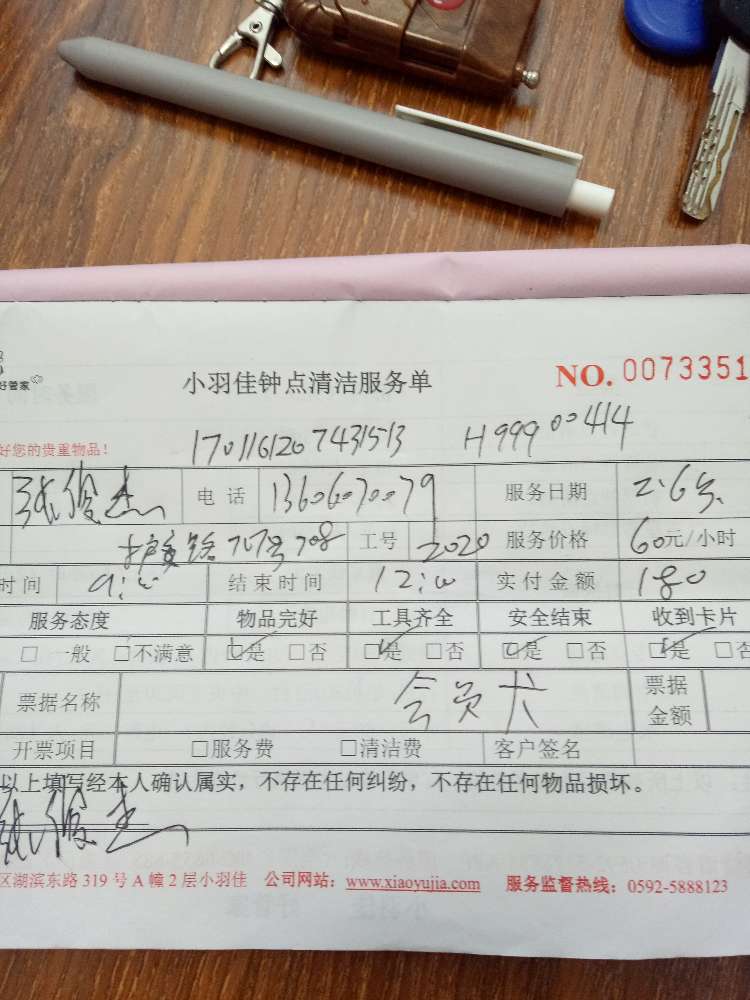 好管家
小羽佳钟点清洁服务单 NO. 0073351
好您的贵重物品!
170116120 7431513 H99900414
电话 13606070079 服务日期 2.6号
707号708 工号 2020 服务价格 60元/小时
时间 9:00 结束时间 12:00 实付金额 180
服务态度 物品完好 工具齐全 安全结束 收到卡片
□ 一般 □不满意 ☑是 □否 ☑是 □否 ☑是 □否 ☑是 □否
票据名称 会员卡 票据金额
开票项目 □服务费 □清洁费 客户签名
以上填写经本人确认属实，不存在任何纠纷，不存在任何物品损坏。
区湖滨东路 319 号 A 幢 2 层小羽佳 公司网站：www.xiaoyujia.com 服务监督热线：0592-5888123